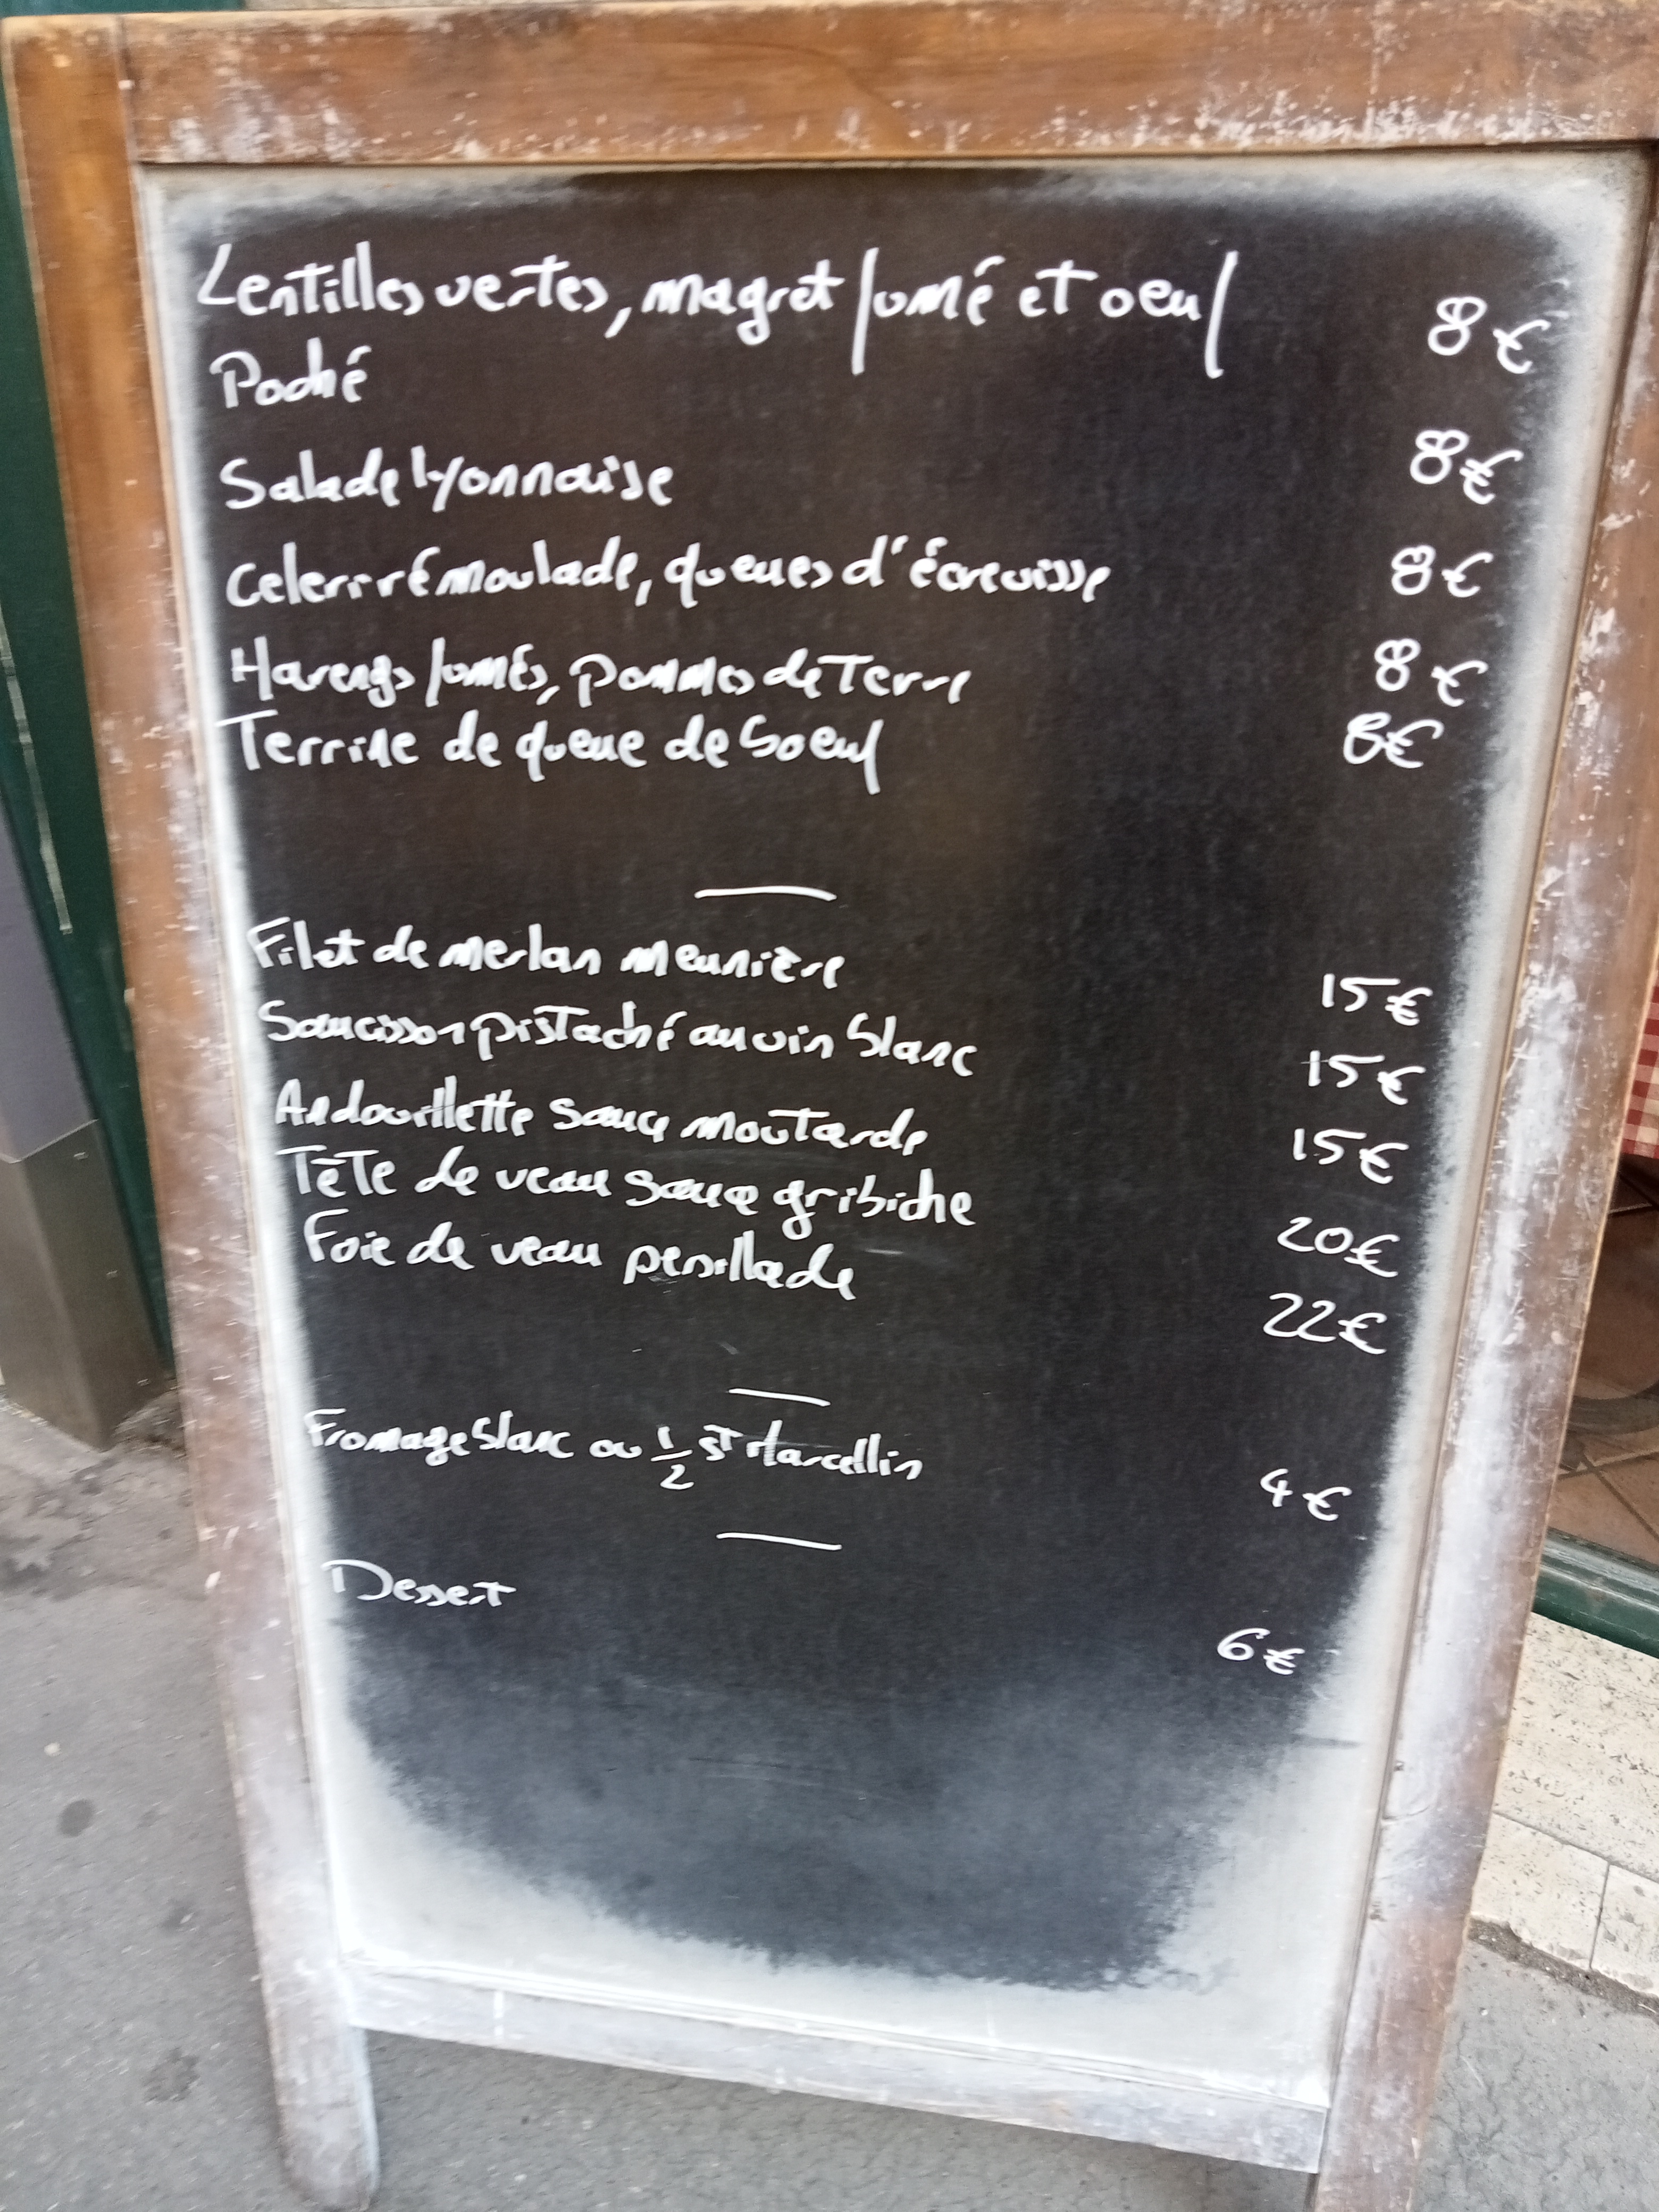 Lentilles vertes, magret fumé et oeuf 8€
Poché
Salade lyonnaise 8€
Celeri rémoulade, queues d'écrevisse 8€
Harengs fumés, pommes de Terre 8€
Terrine de queue de boeuf 8€
Filet de merlan meunière 15€
Saucisson pistaché au vin blanc 15€
Andouillette sauce moutarde 15€
Tête de veau sauce gribiche 20€
Foie de veau persillade 22€
Fromage blanc ou 1/2 st Marcellin 4€
Dessert 6€